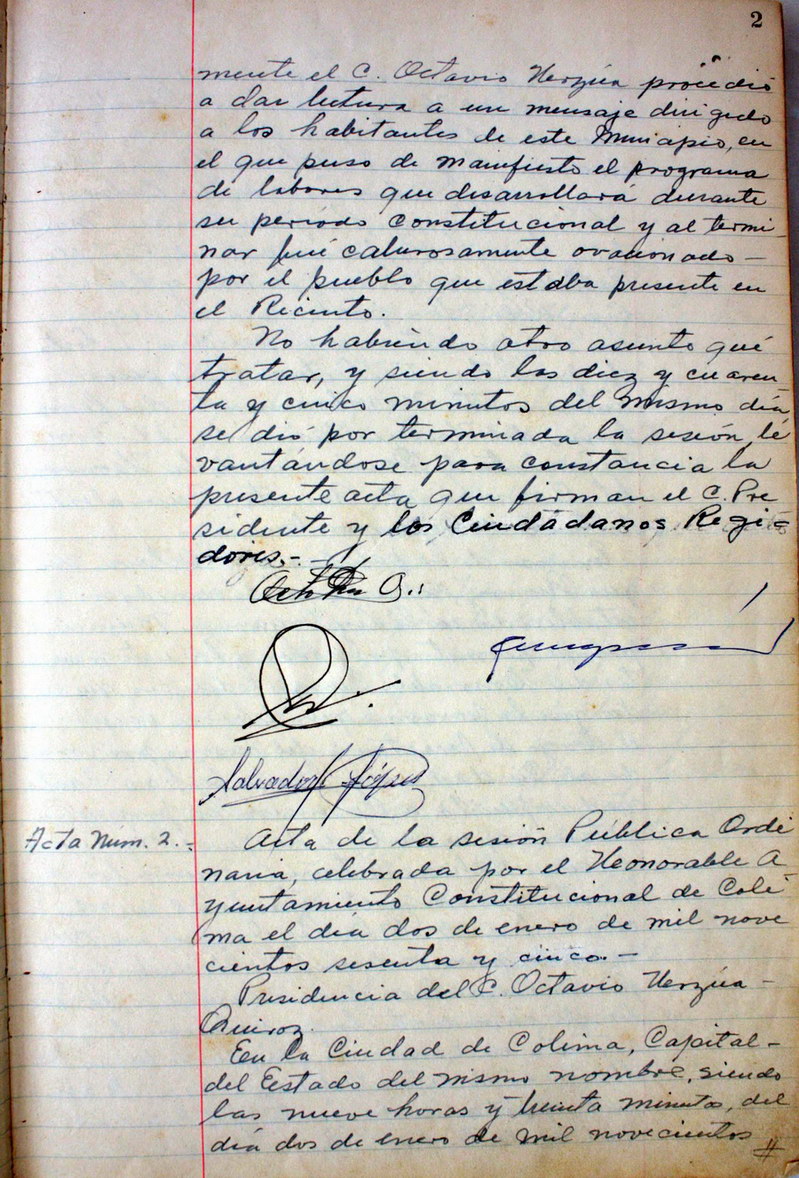 2
mente el C. Octavio Urzúa procedió
a dar lectura a un mensaje dirigido
a los habitantes de este Municipio, en
el que puso de manifiesto el programa
de labores que desarrollará durante
su período constitucional y al termi-
nar fué calurosamente ovacionado -
por el pueblo que estaba presente en
el Recinto.
No habiendo otro asunto qué
tratar, y siendo las diez y cuaren
ta y cinco minutos del mismo día,
se dió por terminada la sesión, le
vantándose para constancia la
presente acta que firman el C. Pre
sidente y los Ciudadanos Regi-
dores.-
Salvador López
Acta Núm. 2.-
Acta de la sesión Pública Ordi
naria, celebrada por el Honorable A
yuntamiento Constitucional de Coli
ma el día dos de enero de mil nove
cientos sesenta y cinco. -
Presidencia del C. Octavio Urzúa -
Quiroz.
En la Ciudad de Colima, Capital -
del Estado del mismo nombre, siendo
las nueve horas y treinta minutos, del
día dos de enero de mil novecientos #